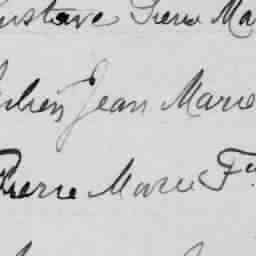 Gustave Pierre Ma
Julien Jean Marie
Pierre Marie F